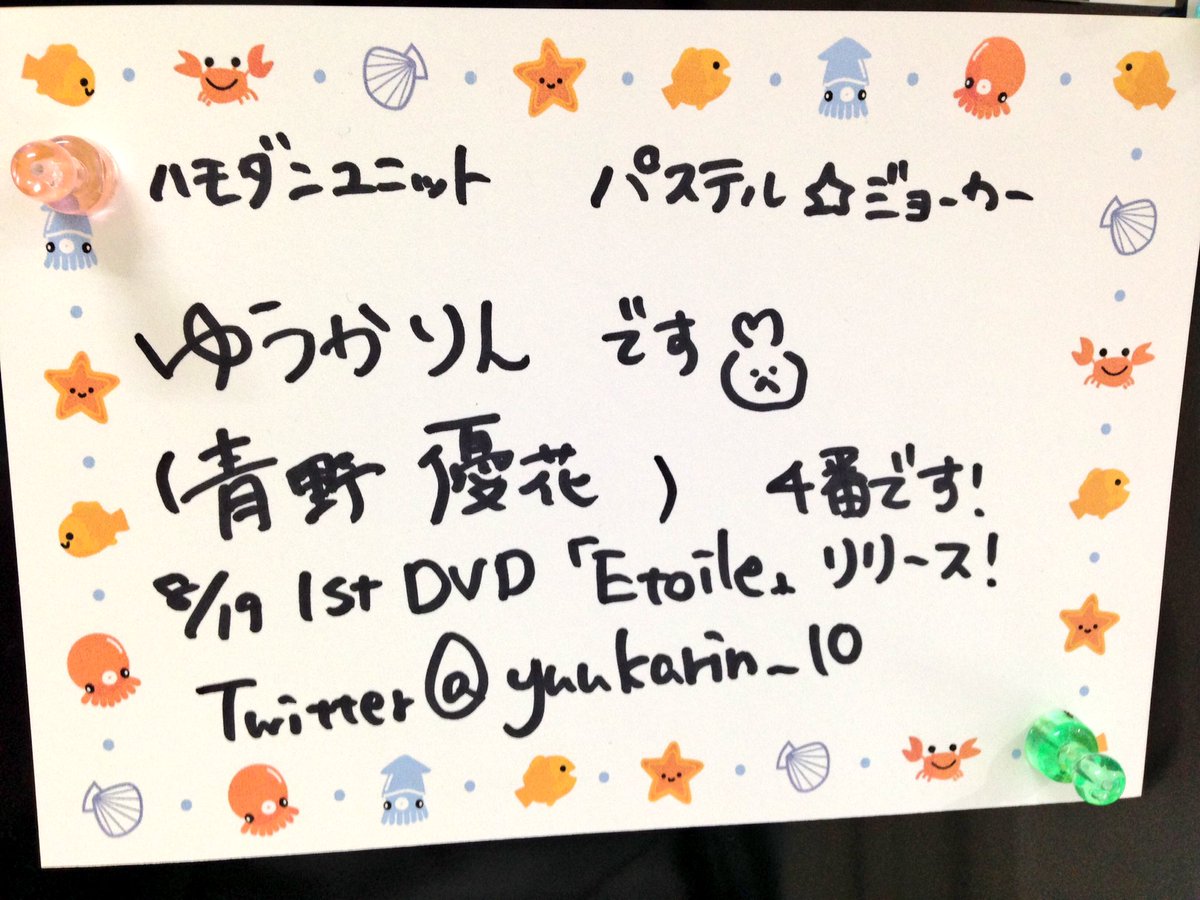 ハモダンユニット パステル☆ジョーカー
ゆうかりん です
(青野 優花) 4番です!
8/19 1st DVD「Etoile」リリース!
Twitter@yuukarin_10